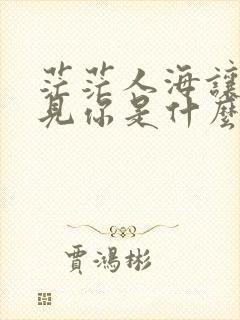 茫茫人海讓
見你是什麼
賈鴻彬